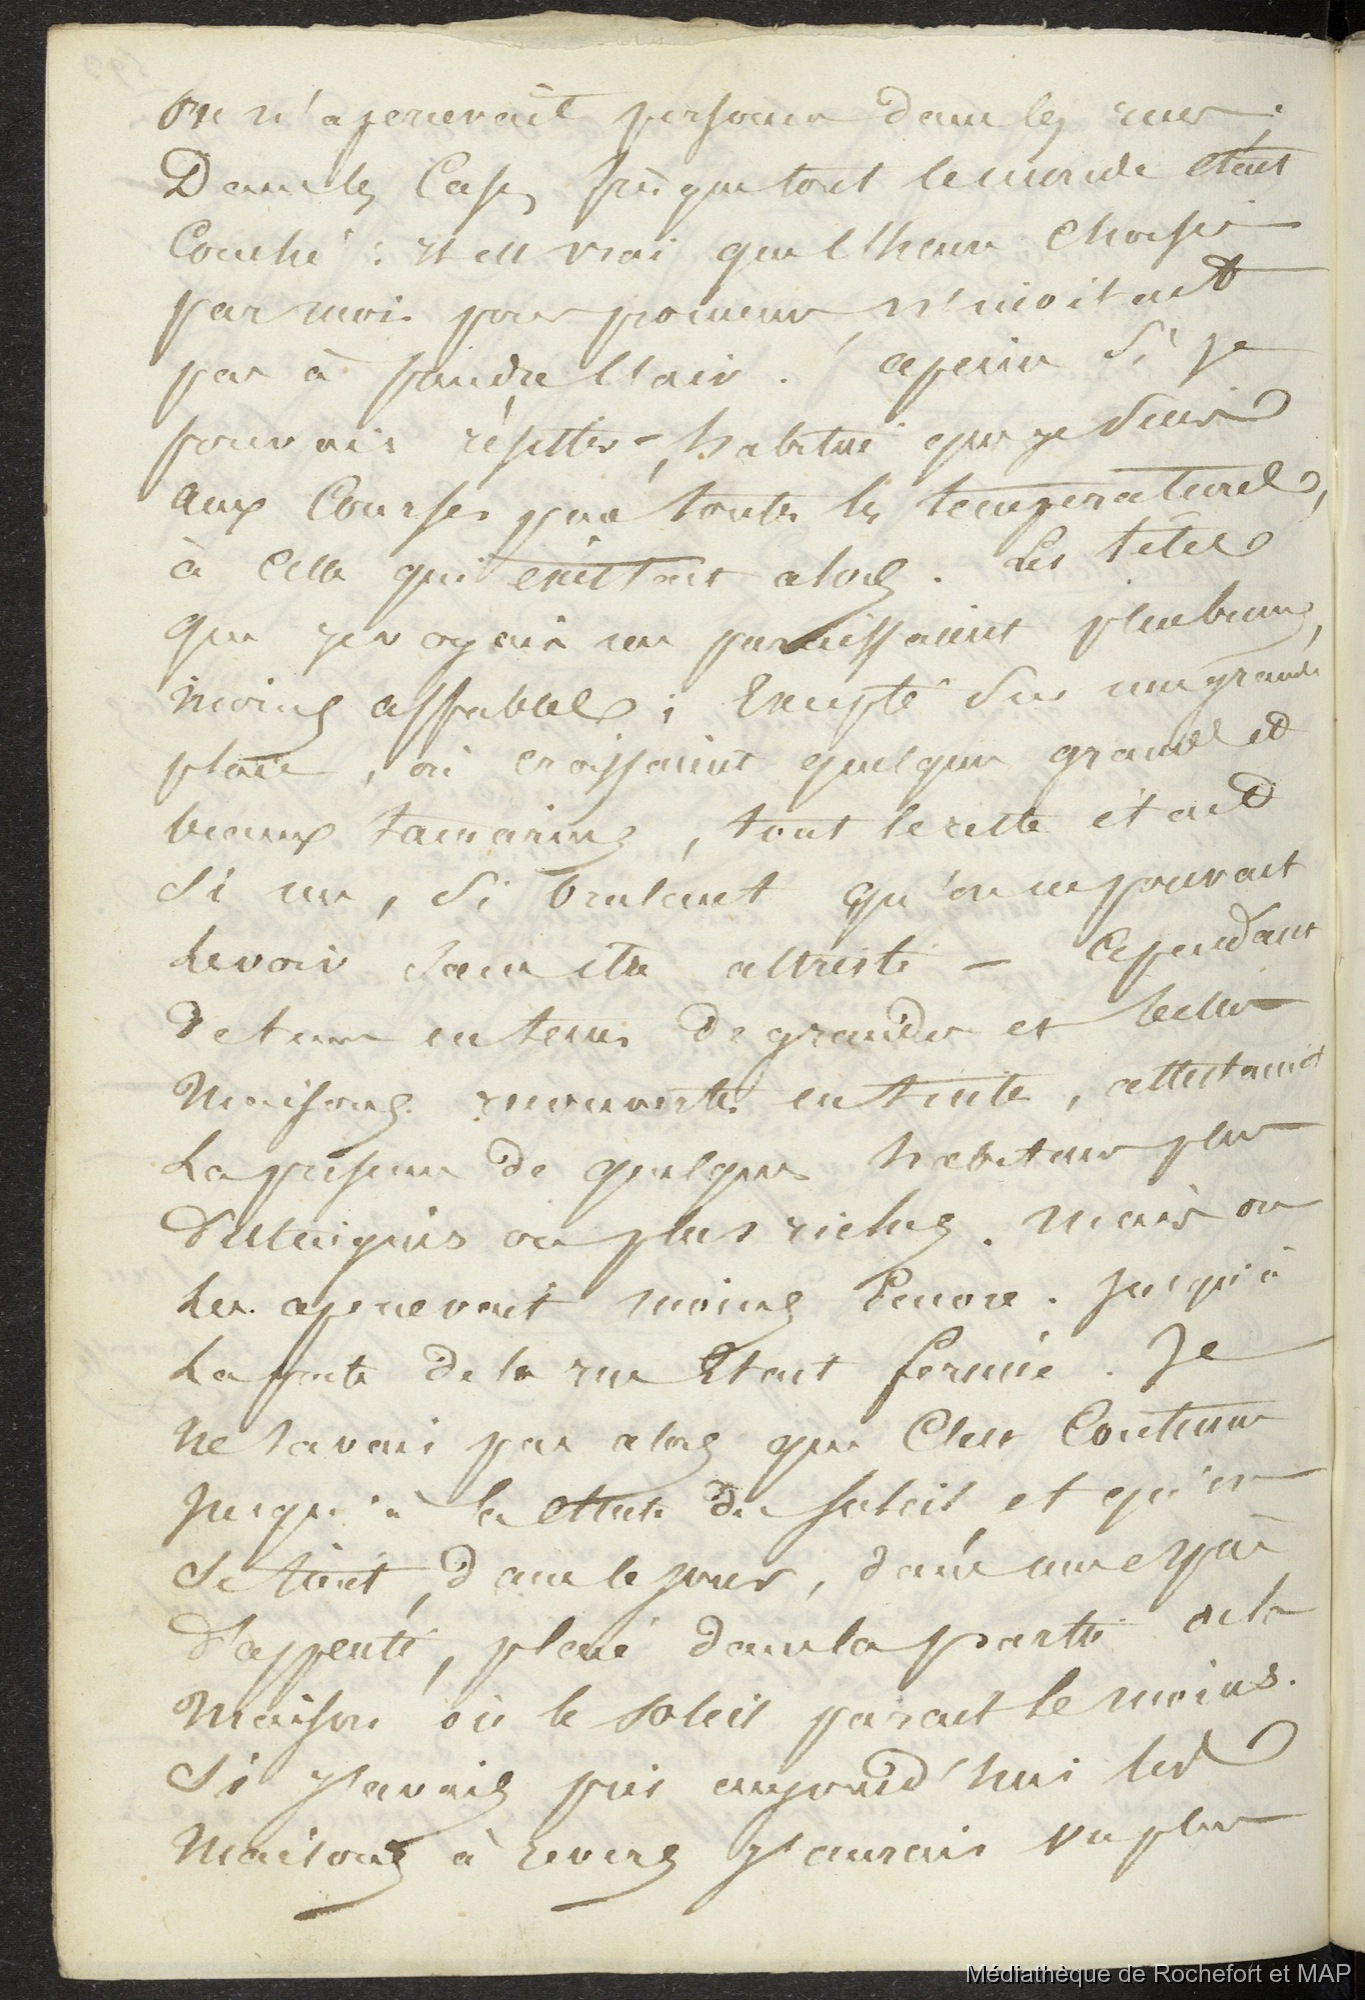 on n'apercevait personne dans les rues;
Dans les Cases presque tout le monde était
Couché : il est vrai que l'heure choisie
par moi pour promener, n'invitait
pas à prendre l'air. à peine si je
pouvais résister, habitué que je suis
aux Courses par toutes les températures,
à celle qui existait alors. Les têtes
que je voyais me paraissaient plus brunes,
moins affables ; Excepté sur une grande
place, où croissaient quelques grands et
beaux tamarins, tout le reste était
si nu, si brulant qu'on ne pouvait
le voir sans être attristé – Cependant
de tems en tems de grandes et belles
Maisons recouvertes en tuiles, attestaient
La présence de quelques habitans plus
distingués ou plus riches. Mais on
Les apercevait moins Encore. Jusqu'à
La porte de la rue était fermée. Je
ne savais pas alors que C'est Coutume
jusqu'à la chute du soleil, et qu'on
se tient, dans le jour, dans une espèce
d'appenti, placé dans la partie de la
Maison où le soleil parait le moins.
Si j'avais pris aujourd'hui les
Maisons à revers j'aurais vu plus
Médiathèque de Rochefort et MAP